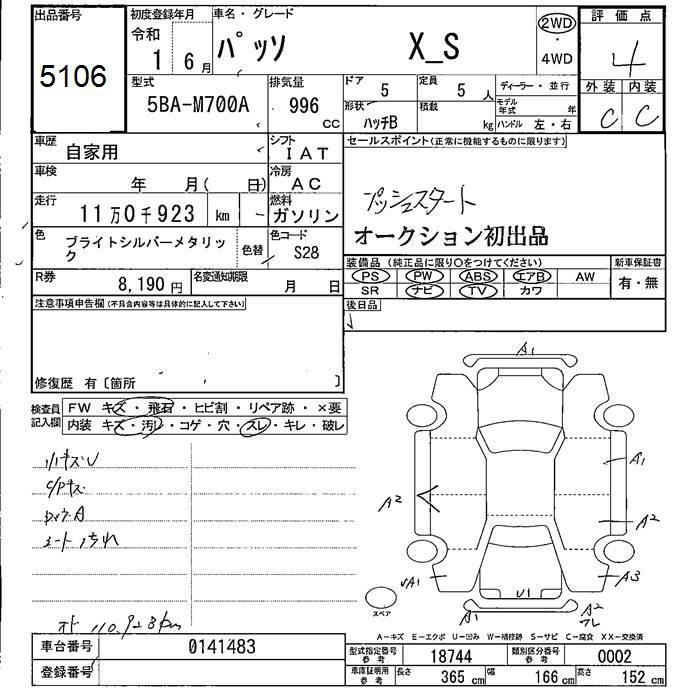 出品番号 初度登録年月 車名・グレード 2WD 評価点
5106 令和 1年 6月 パッソ X_S ・ 4WD 4
型式 排気量 ドア 定員 ディーラー・並行 外装 内装
5BA-M700A 996 CC 5 5人 モデル年式 年 C C
形状 ハッチB 積載 kg ハンドル 左・右
車歴 自家用 シフト IAT セールスポイント(正常に機能するものに限ります)
車検 年 月( 日) 冷房 AC プッシュスタート
走行 11万0千923 km 燃料 ガソリン オークション初出品
色 ブライトシルバーメタリック 色替 色コード S28
装備品(純正品に限り○をつけてください) 新車保証書
PS PW ABS エアB AW 有・無
SR ナビ TV カワ
R券 8,190円 名変通知期限 月 日 後日品
注意事項申告欄(不具合内容等は具体的に記入して下さい)
修復歴 有〔箇所 〕
検査員記入欄 FW キズ・飛石・ヒビ割・リペア跡・×要
内装 キズ・汚レ・コゲ・穴・スレ・キレ・破レ
ハキズU
C/Pキズ
シート汚れ
オド 110,923km
A1
A1
A2
A2
A3
A1
U1
A1
A2
スペア
A-キズ E-エクボ U-凹み W-補修跡 S-サビ C-腐食 XX-交換済
車台番号 0141483 型式指定番号 参考 18744 類別区分番号 参考 0002
登録番号 車庫証明用 参考 長さ 365cm 幅 166cm 高さ 152cm